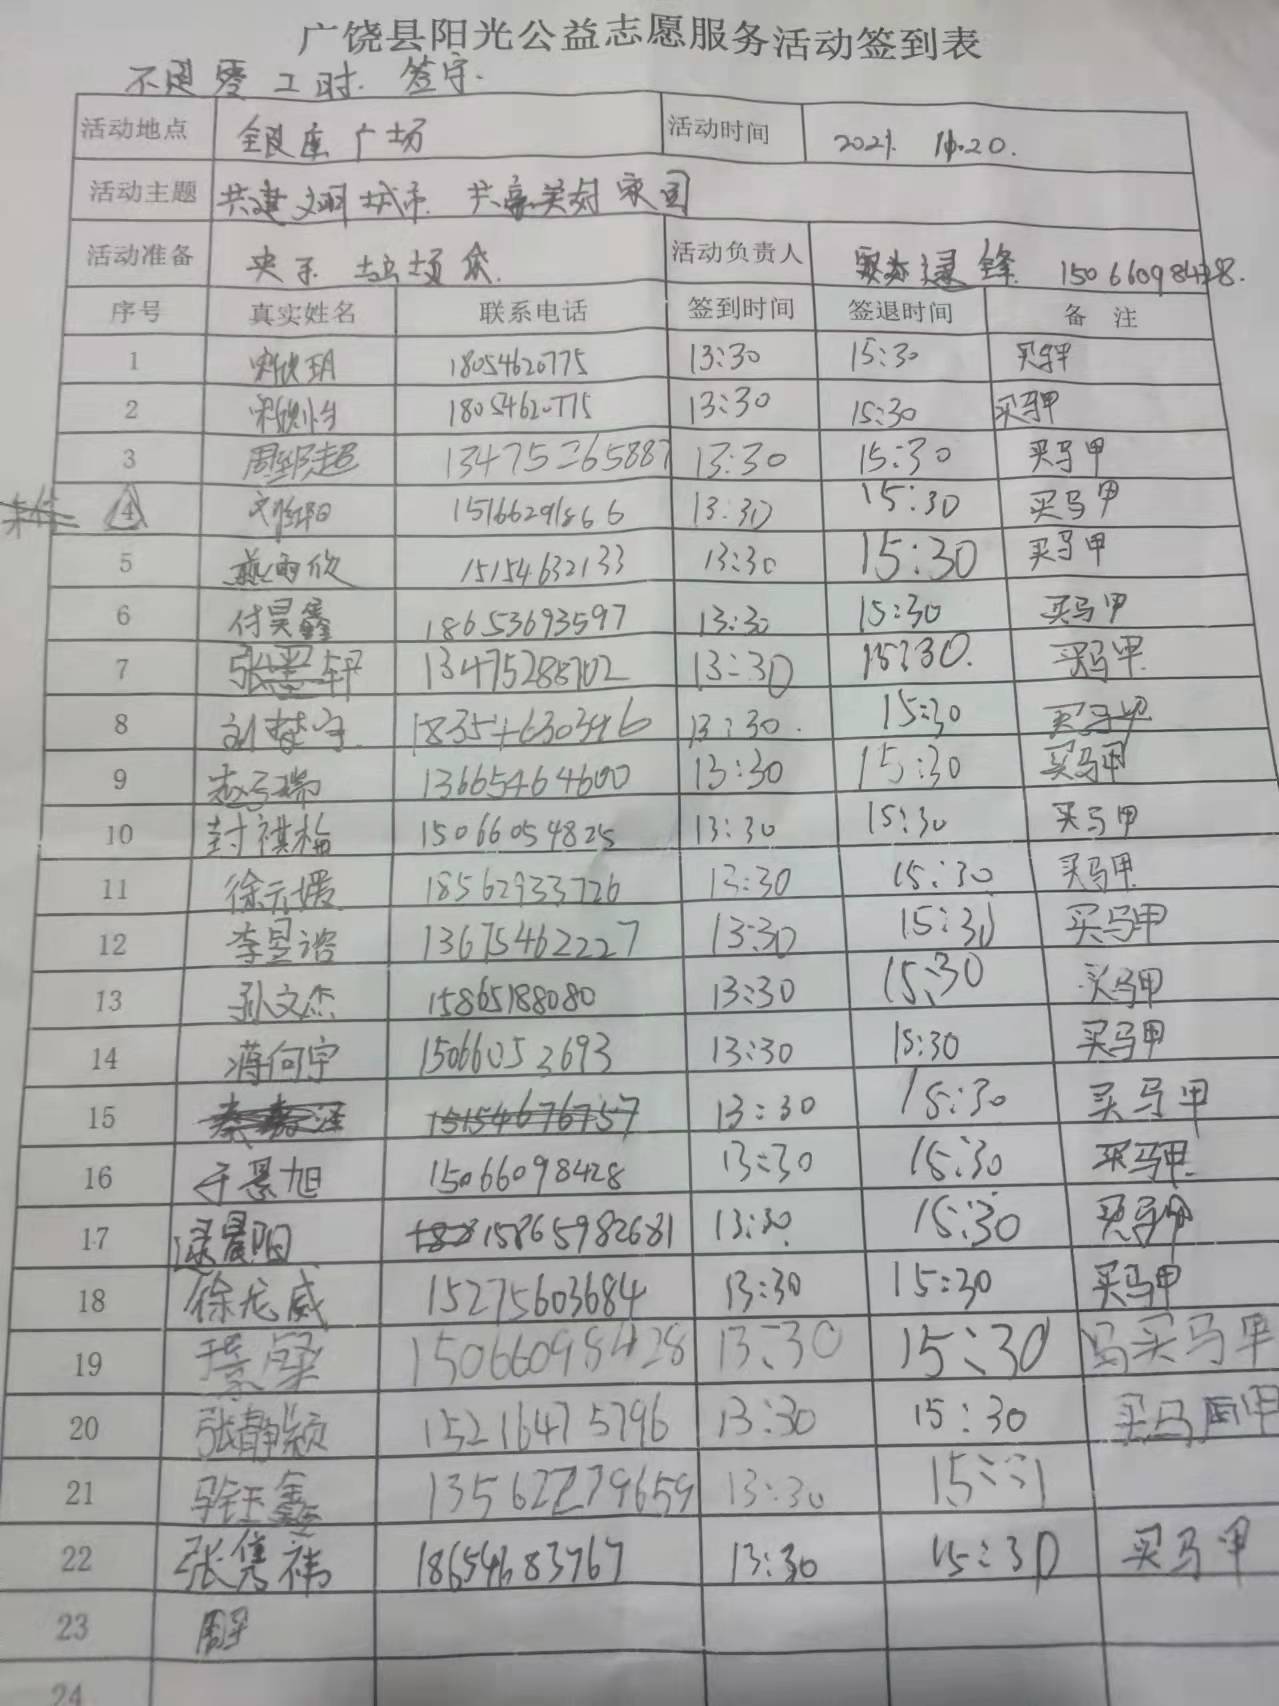 广饶县阳光公益志愿服务活动签到表
签字.
活动地点 银座广场 活动时间 2021. 11.20.
活动主题 共建文明城市 共享美好家园
活动准备 活动负责人 15066098428.
序号 真实姓名 联系电话 签到时间 签退时间 备 注
1 18054620775 13:30 15:30 买马甲
2 18054620775 13:30 15:30 买马甲
3 13475265887 13:30 15:30 买马甲
4 15166291866 13:30 15:30 买马甲
5 燕雨欣 15154632133 13:30 15:30 买马甲
6 付昊鑫 18653693597 13:30 15:30 买马甲
7 张墨轩 13475288702 13:30 15:30. 买马甲
8 刘梦宇 18354630396 13:30. 15:30 买马甲
9 13665464600 13:30 15:30 买马甲
10 封祺梅 15066054825 13:30 15:30 买马甲
11 徐元媛 18562933726 13:30 15:30 买马甲
12 李昱谘 13675462227 13:30 15:30 买马甲
13 孙文杰 15865188080 13:30 15:30 买马甲
14 蒋何宇 15066052693 13:30 15:30 买马甲
15 15154676757 13:30 15:30 买马甲
16 于恩旭 15066098428 13:30 15:30 买马甲
17 逯晨阳 15865982681 13:30 15:30 买马甲
18 徐龙威 15275603684 13:30 15:30 买马甲
19 15066098428 13:30 15:30 马买马甲
20 张静颖 15216475796 13:30 15:30 买马甲
21 13562279659 13:30
22 张隽祎 18654683767 13:30 15:30 买马甲
23 周平
24